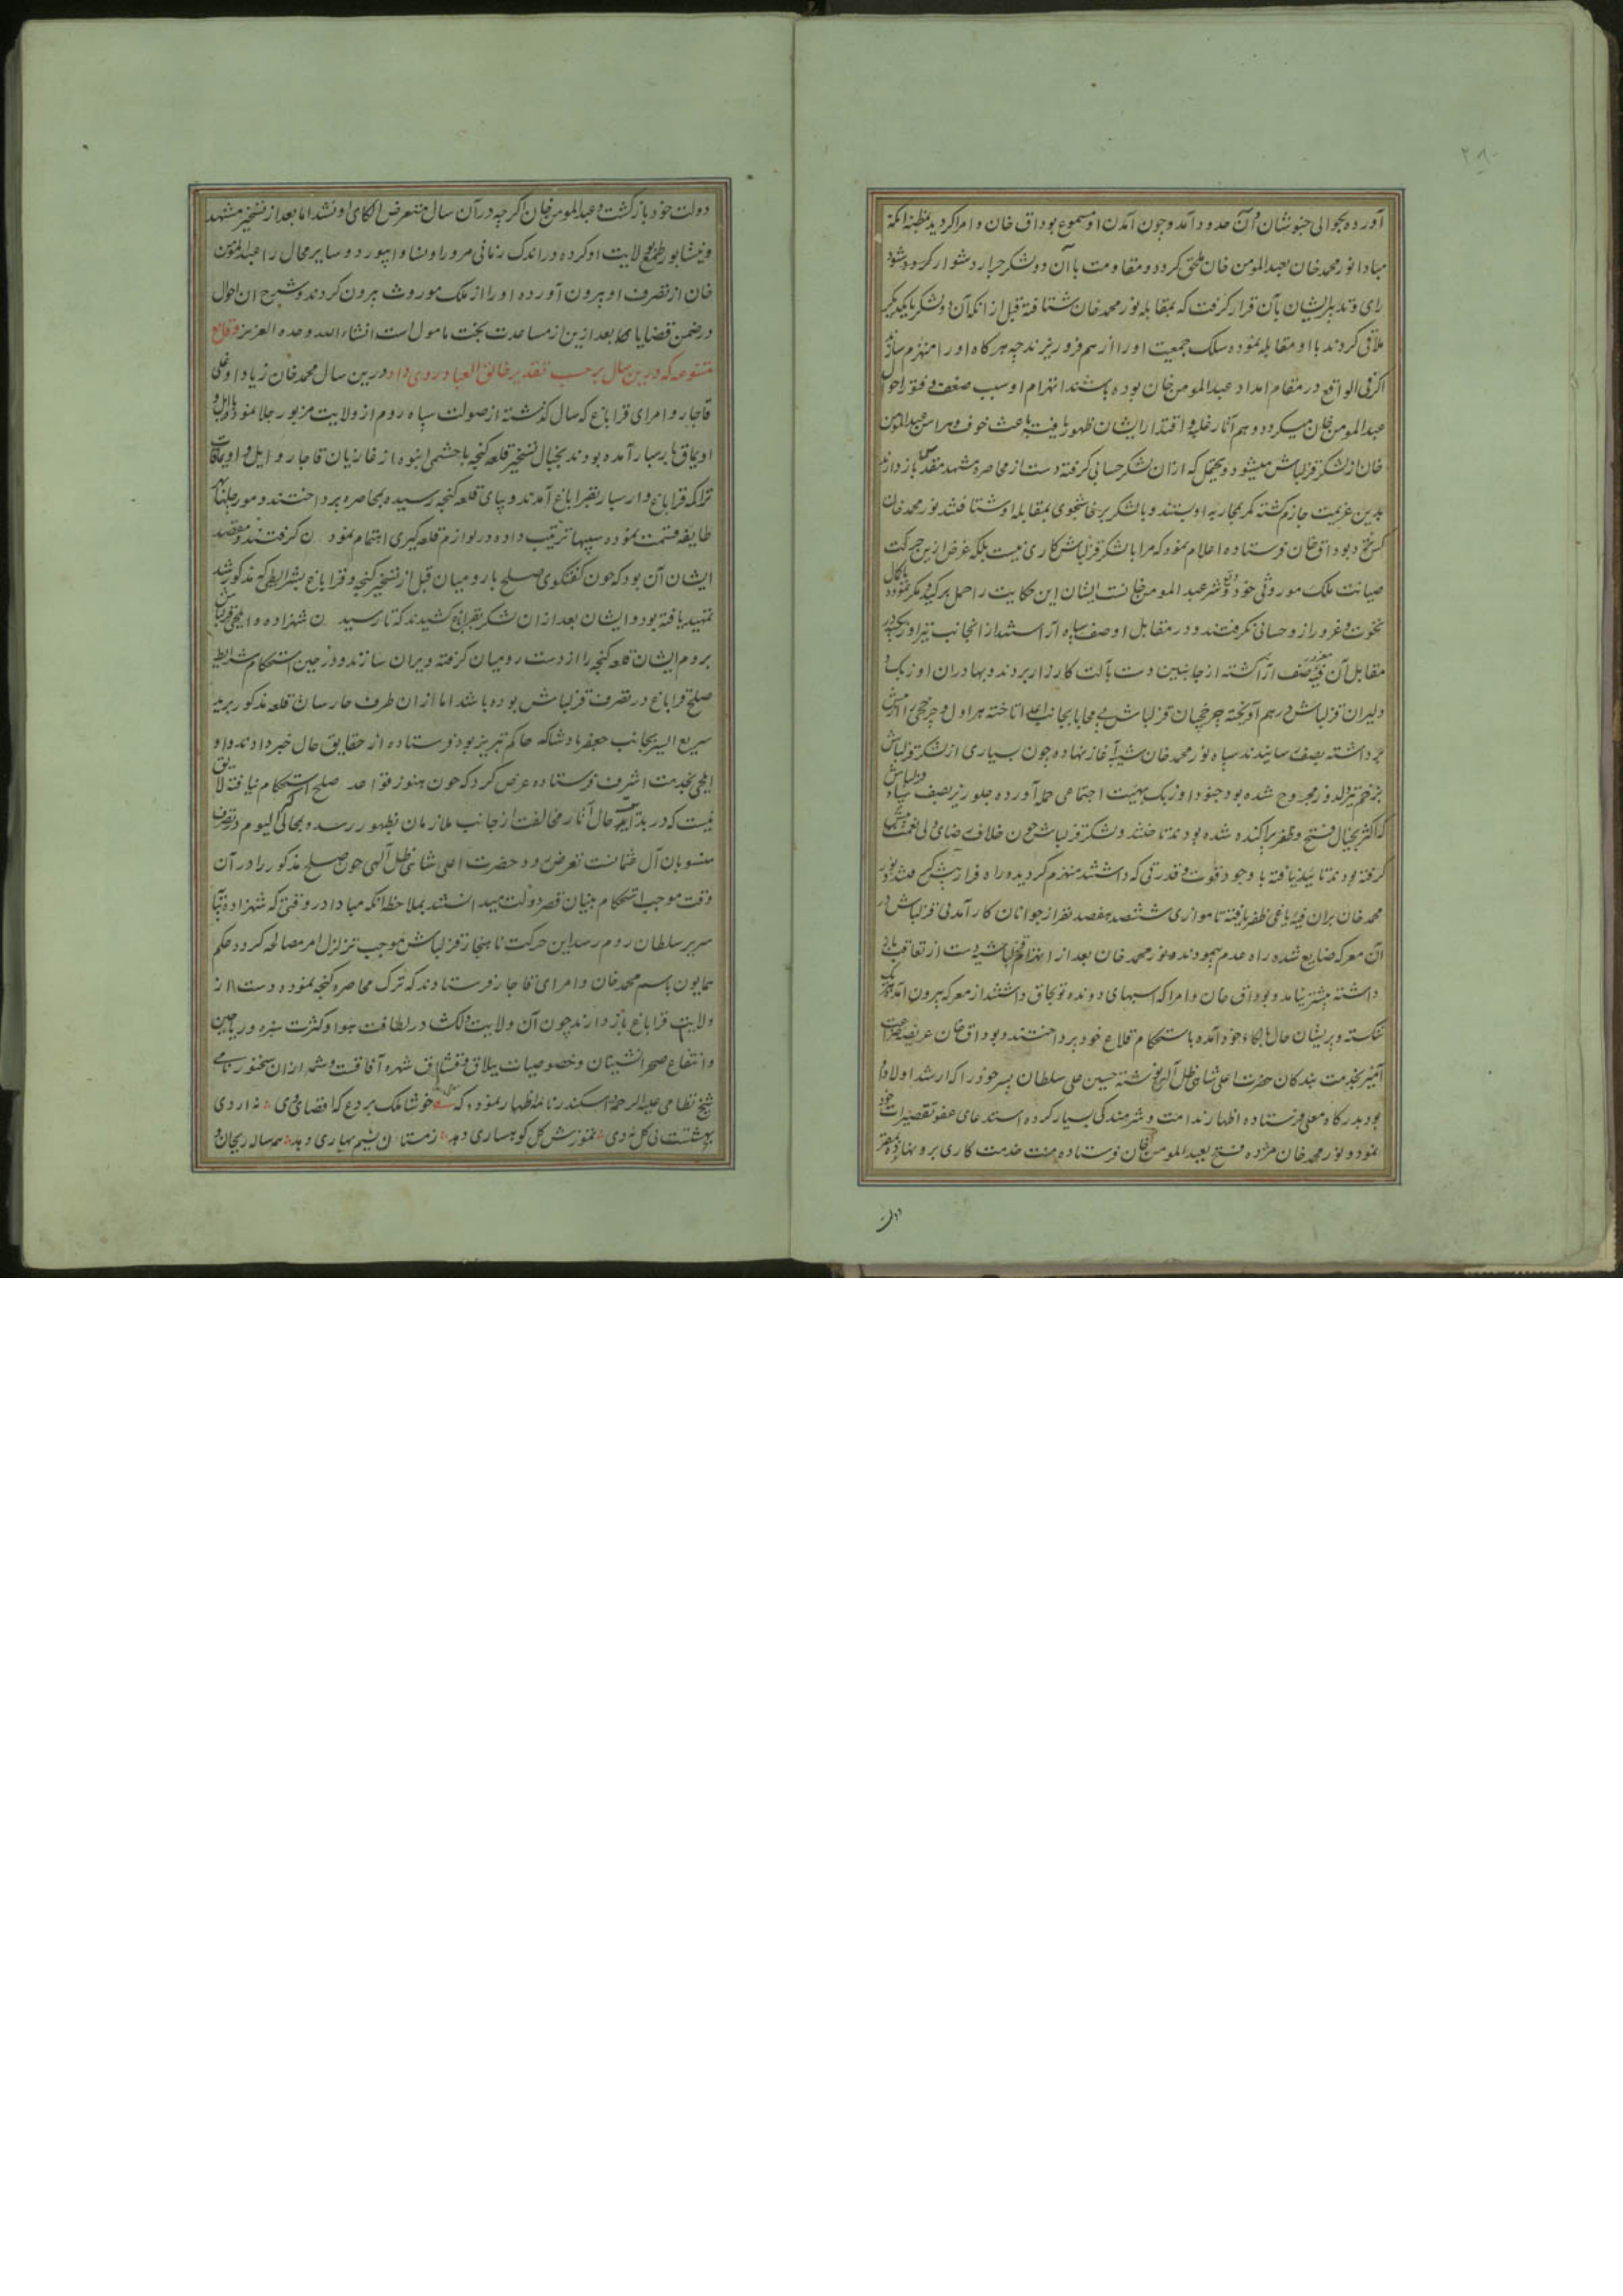 ۲۸۰
آورده بحوالی خبوشان و آن حدود آمد و چون آمدن او مسموع بوداق خان و امرا کردید بمظنه انکه
مبادا نور محمد خان بعبد المومن خان ملحق کردد و مقاومت با آن دو لشکر جرار دشوار کردد
رای و تدبیر ایشان بآن قرار کرفت که بمقابله نور محمد خان شتافته قبل از انکه آن دو لشکر بایکدیکر
ملاقی کردند با او مقابله نموده سلک جمعیت او را از هم فرو ریزند چه هر کاه او را منهزم سازند
اکر فی الواقع در مقام امداد عبد المومن خان بوده باشند انهزام او سبب ضعف و فتور احوال
عبد المومن خان میکردد و هم آثار غلبه و اقتدار ایشان ظهور یافته باعث خوف و هراس عبد المومن
خان از لشکر قزلباش میشود و یحتمل که از ان لشکر حسابی کرفته دست از محاصره مشهد مقدس باز دارند
بدین عزیمت جازم کشته کمر بمحاربه او بستند و با لشکر پرخاشجوی بمقابله او شتافتند نور محمد خان
کس نزد بوداق خان فرستاده اعلام نمود که مرا با لشکر قزلباش کاری نیست بلکه غرض ازین حرکت
صیانت ملک موروثی خود و دفع شر عبد المومن خانست ایشان این حکایت را حمل بر کید و مکر نموده
نخوت و غرور از و حسابی نکرفتند و در مقابل او صف سپاه آراستند از انجانب نیز اوزبکیه در
مقابل آن فئه مغرور صف آرا کشته از جانبین دست بآلت کارزار بردند و بهادران اوزبک و
دلیران قزلباش در هم آویخته چرخچیان قزلباش بی محابا بجانب اعدا تاخته هراول و چرخچی را از پیش
برداشته بصف رسانیدند سپاه نور محمد خان شیبه آغاز نهاده چون بسیاری از لشکر قزلباش
بزخم تیر دلدوز مجروح شده بود جنود اوزبک بهیئت اجتماعی حمله آورده جلوریز بصف سپاه قزلباش
که اکثر بخیال فتح و ظفر پراکنده شده بودند تاختند و لشکر قزلباش چون خلاف رضای ولی نعمت پیش
کرفته بودند تائید نیافته با وجود قوت و قدرتی که داشتند منهزم کردیده راه فرار پیش کرفتند نور
محمد خان بران فئه باغی ظفر یافته تا موازی ششصد هفصد نفر از جوانان کار آمدنی قزلباش در
آن معرکه ضایع شده راه عدم پیمودند و نور محمد خان بعد از انهزام قزلباشیه دست از تعاقب باز
داشته پیشتر نیامد و بوداق خان و امرا که اسبهای دونده توبجاق داشتند از معرکه بیرون آمده هر یک
شکسته و پریشان حال بالکاء خود آمده باستحکام قلاع خود پرداختند و بوداق خان عریضه ضراعت
آمیز بخدمت بندکان حضرت اعلی شاهی ظل آلهی نوشته حسین علی سلطان پسر خود را که ارشد اولاد او
بود بدرکاه معلی فرستاده اظهار ندامت و شرمندکی بسیار کرده استدعای عفو تقصیرات خود
نمود و نور محمد خان مژده فتح بعبد المومن خان فرستاده منت خدمت کاری برو نهاده بمقر
دولت
دولت خود بازکشت و عبد المومن خان اکرچه در آن سال متعرض الکای او نشد اما بعد از تسخیر مشهد
و نیشابور طمع بولایت او کرده در اندک زمانی مرو را و نسا و ابیورد و سایر محال را عبد المومن
خان از تصرف او بیرون آورده او را از ملک موروث بیرون کردند و شرح ان احوال
در ضمن قضایا که بعد ازین از مساعدت بخت مامول است انشاء الله وحده العزیز وقایع
متنوعه که درین سال بر حسب تقدیر خالق العباد روی داد درین سال محمد خان زیاد اوغلی
قاجار و امرای قراباغ که سال کذشته از صولت سپاه روم از ولایت مزبور جلا نموده با ایل و
اویماق بارسبار آمده بودند بخیال تسخیر قلعه کنجه با حشمی انبوه از غازیان قاجار و ایل و اویماقات
تراکمه قراباغ و ارسبار بقراباغ آمدند و بپای قلعه کنجه رسیده بمحاصره پرداختند و مورجلها بهر
طایفه قسمت نموده سیبها ترتیب داده در لوازم قلعه کیری اهتمام نمودن کرفتند و مقصد
ایشان آن بود که چون کفتکوی صلح با رومیان قبل از تسخیر کنجه و قراباغ بشرایطی که مذکور شد
تمهید یافته بود و ایشان بعد از ان لشکر بقراباغ کشیدند که تا رسیدن شهزاده و ایلچی قزلباش
بروم ایشان قلعه کنجه را از دست رومیان کرفته ویران سازند و در حین استحکام شرایط
صلح قراباغ در تصرف قزلباش بوده باشد اما از ان طرف حارسان قلعه مذکور برید
سریع السیر بجانب جعفر پادشا که حاکم تبریز بود فرستاده از حقایق حال خبر دادند و او
ایلچی بخدمت اشرف فرستاده عرض کرد که چون هنوز قواعد صلح استحکام نیافته لایق
نیست که در بدایت حال آثار مخالفت از جانب ملازمان بظهور رسد و بمحالی که الیوم در تصرف
منسوبان آل عثمانست تعرض رود حضرت اعلی شاهی ظل آلهی چون صلح مذکور را در آن
وقت موجب استحکام بنیان قصر دولت میدانستند بملاحظه انکه مبادا در وقتی که شهزاده بپای
سریر سلطان روم رسد این حرکت ناهنجار قزلباش موجب تزلزل امر مصالحه کردد حکم
همایون باسم محمد خان و امرای قاجار فرستادند که ترک محاصره کنجه نموده دست از
ولایت قراباغ باز دارند چون آن ولایت دلکش در لطافت هوا و کثرت سبزه و ریاحین
و انتفاع صحرانشینان و خصوصیات ییلاق و قشلاق شهره آفاقست و شمه از ان سخنور نامی
شیخ نظامی علیه الرحمه در اسکندر نامه اظهار نموده که خوشا ملک بردع که اقصای وی نه اردی
بهشتست بی کل نه دی تموزش کل کوهساری دهد زمستان نسیم بهاری دهد همه ساله ریحان و